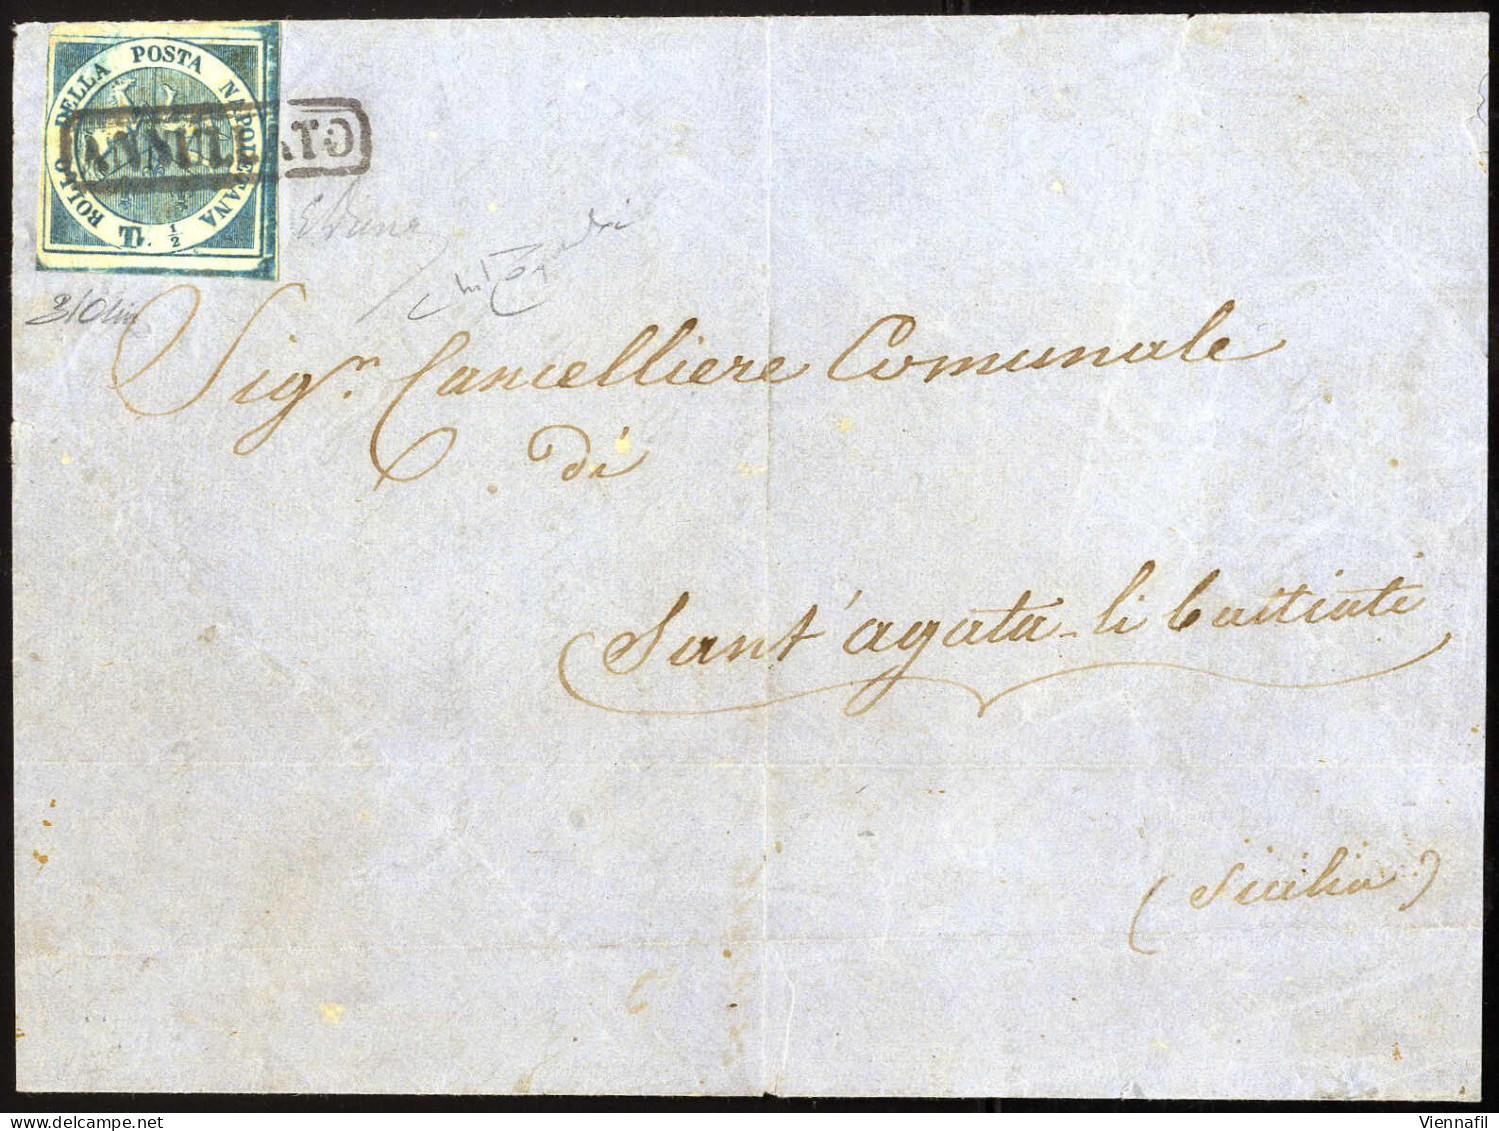 BOLLO DELLA POSTA NAPOLETANA
½
ANNULLATO
Sig.r Cancelliere Comunale
di
Sant'agata li battiati
(Sicilia)
Viennafil